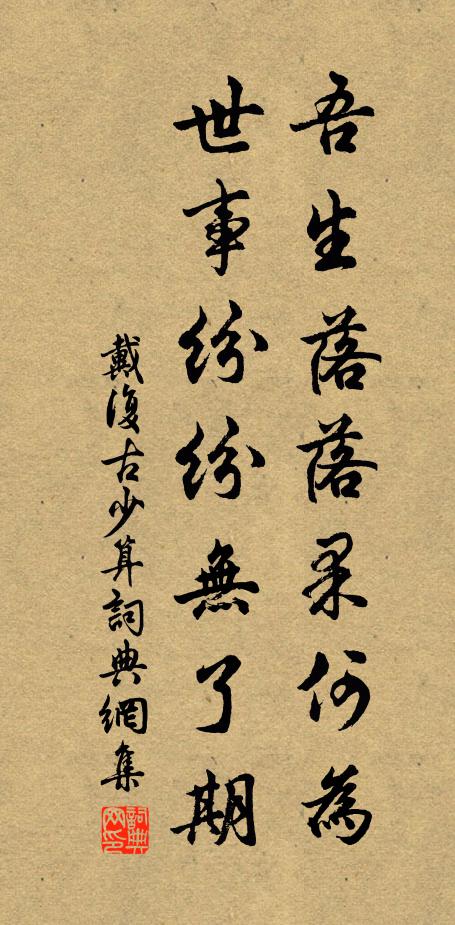 吾生落落果何為
世事紛紛無了期
戴復古少算詞典網集
詞典網印